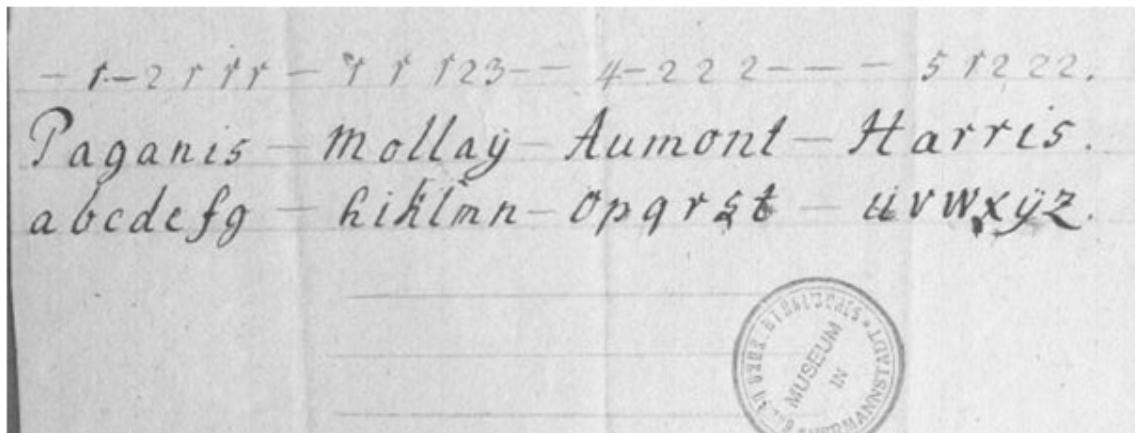 – 1 – 2 1 1 1 – 1 1 1 2 3 – – 4 – 2 2 2 – – – – 5 1 2 2 2.
Paganis – Mollaÿ – Aumont – Harris.
a b c d e f g – h i k l m n – o p q r s t – u v w x ÿ z.
MUSEUM
IN